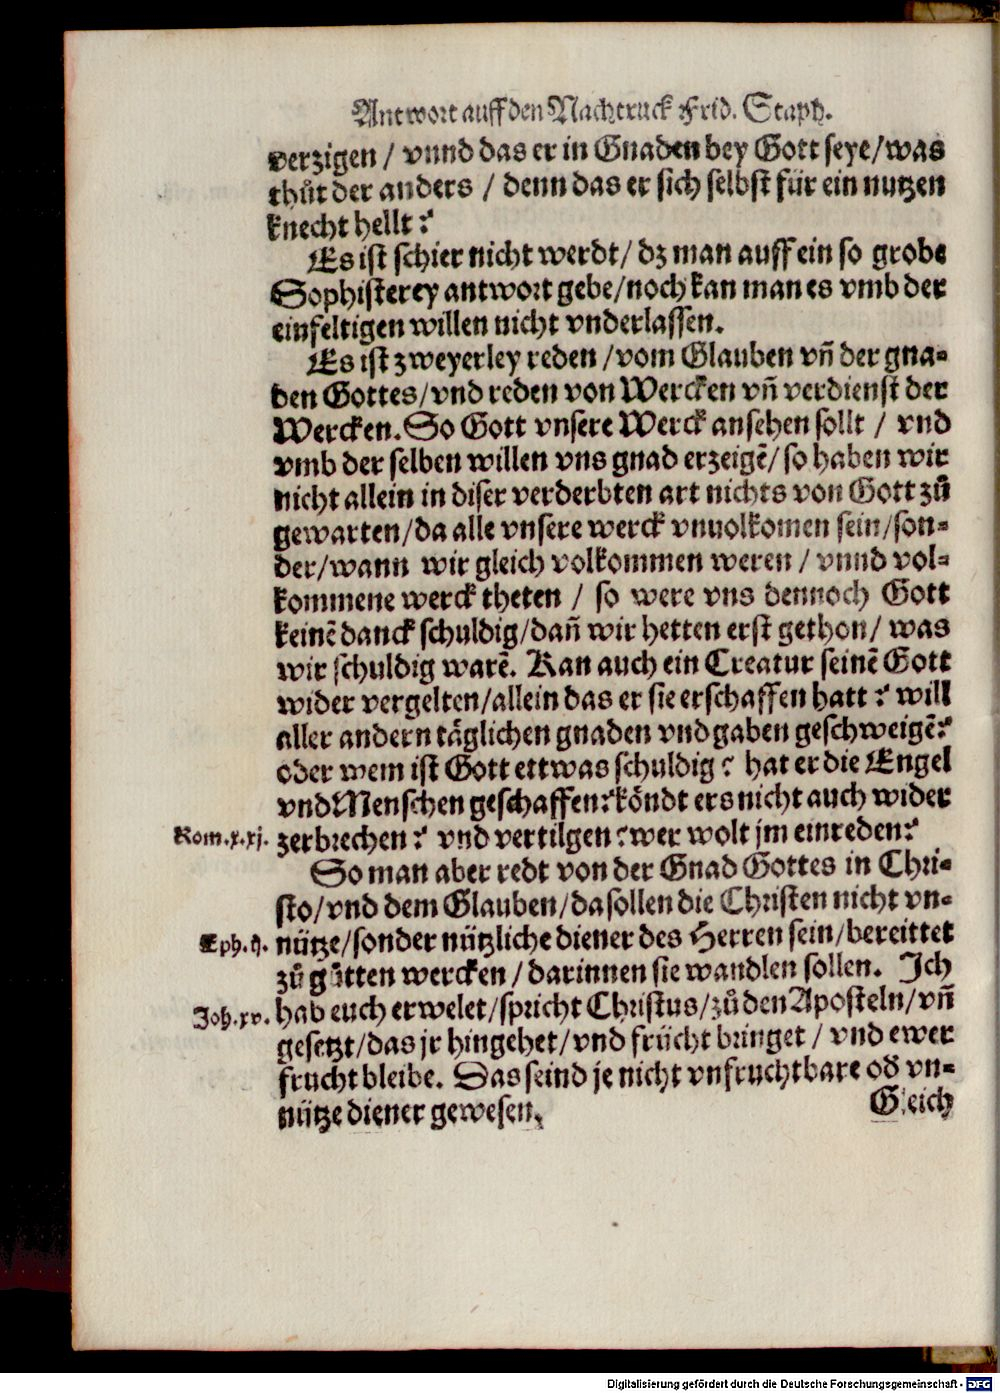 Antwort auff den Nachtruck Frid. Staph.
verzigen / vnnd das er in Gnaden bey Gott seye/was
thůt der anders / denn das er sich selbst für ein nutzen
knecht hellt?
Es ist schier nicht werdt/ dz man auff ein so grobe
Sophisterey antwort gebe/noch kan man es vmb der
einfeltigen willen nicht vnderlassen.
Es ist zweyerley reden /vom Glauben vñ der gna-
den Gottes/vnd reden von Wercken vñ verdienst der
Wercken. So Gott vnsere Werck ansehen sollt / vnd
vmb der selben willen vns gnad erzeigẽ/ so haben wir
nicht allein in diser verderbten art nichts von Gott zů
gewarten/da alle vnsere werck vnuolkomen sein/son-
der/wann wir gleich volkommen weren / vnnd vol-
kommene werck theten / so were vns dennoch Gott
keinẽ danck schuldig/dañ wir hetten erst gethon/ was
wir schuldig warẽ. Kan auch ein Creatur seinẽ Gott
wider vergelten/allein das er sie erschaffen hatt? will
aller andern täglichen gnaden vnd gaben geschweigẽ?
oder wem ist Gott ettwas schuldig? hat er die Engel
vnd Menschen geschaffen? köndt ers nicht auch wider
Rom.x.xj. zerbrechen? vnd vertilgen? wer wolt jm einreden?
So man aber redt von der Gnad Gottes in Chri-
sto/vnd dem Glauben/da sollen die Christen nicht vn-
Eph.ij. nütze/sonder nützliche diener des Herren sein/bereittet
zů gůtten wercken / darinnen sie wandlen sollen. Ich
Joh.xv. hab euch erwelet/spricht Christus/zů den Aposteln/vñ
gesetzt/das jr hingehet/vnd frücht bringet / vnd ewer
frucht bleibe. Das seind je nicht vnfruchtbare oď vn-
nütze diener gewesen.
Gleich
Digitalisierung gefördert durch die Deutsche Forschungsgemeinschaft - DFG